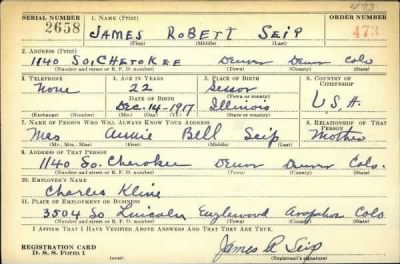 473
SERIAL NUMBER 1. NAME (Print) ORDER NUMBER
2658 JAMES ROBETT SEIP 473
(First) (Middle) (Last)
2. ADDRESS (Print)
1140 SO. CHEROKEE Denver Denver Colo
(Number and street or R. F. D. number) (Town) (County) (State)
3. TELEPHONE 4. AGE IN YEARS 5. PLACE OF BIRTH 6. COUNTRY OF CITIZENSHIP
None 22 Sessor
DATE OF BIRTH (Town or county)
Dec. 14-1917 Illinois U.S.A.
(Exchange) (Number) (Mo.) (Day) (Yr.) (State or country)
7. NAME OF PERSON WHO WILL ALWAYS KNOW YOUR ADDRESS 8. RELATIONSHIP OF THAT PERSON
Mrs Annie Bell Seip Mother
(Mr., Mrs., Miss) (First) (Middle) (Last)
9. ADDRESS OF THAT PERSON
1140 So. Cherokee Denver Denver Colo.
(Number and street or R. F. D. number) (Town) (County) (State)
10. EMPLOYER'S NAME
Charles Kline
11. PLACE OF EMPLOYMENT OR BUSINESS
3504 So Lincoln Englewood Arapahoe Colo
(Number and street or R. F. D. number) (Town) (County) (State)
I AFFIRM THAT I HAVE VERIFIED ABOVE ANSWERS AND THAT THEY ARE TRUE.
REGISTRATION CARD
D. S. S. Form 1 James R. Seip
(Registrant's signature)